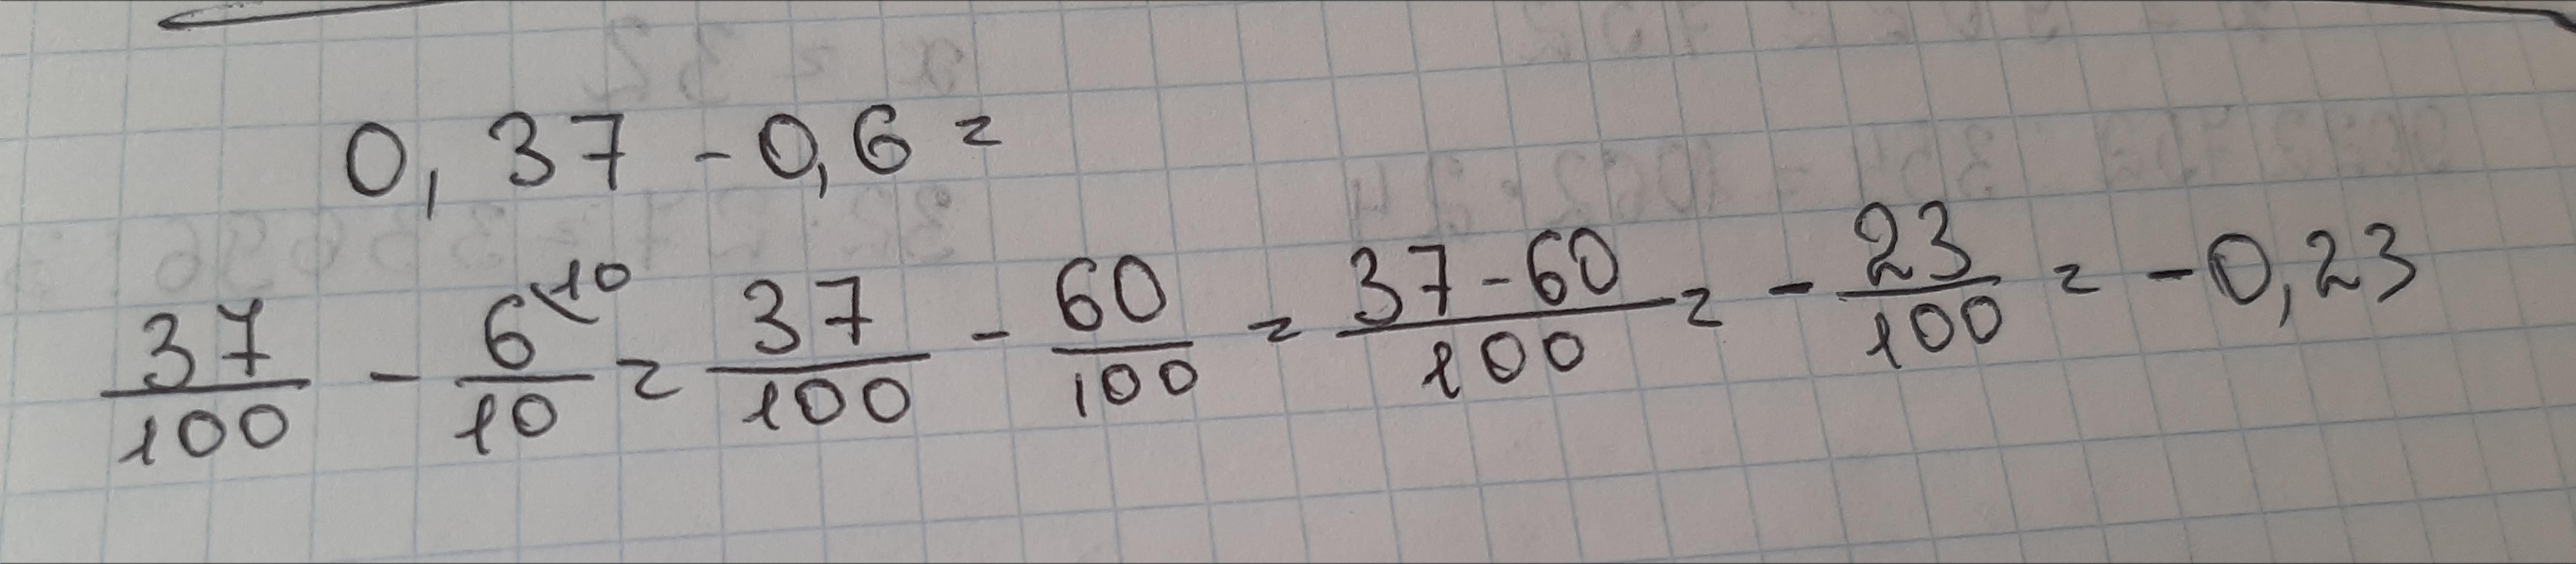 0,37 - 0,6 =
37/100 - 6⁽¹⁰/10 = 37/100 - 60/100 = 37-60/100 = - 23/100 = -0,23